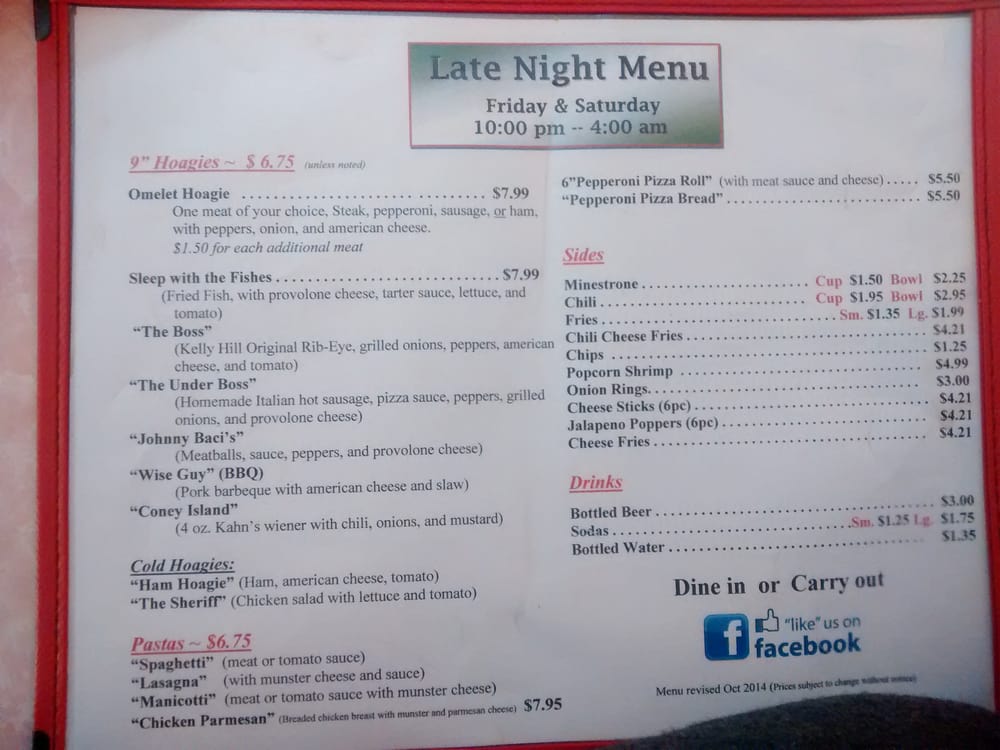 Late Night Menu
Friday & Saturday
10:00 pm -- 4:00 am
9" Hoagies ~ $ 6.75 (unless noted)
Omelet Hoagie ................................ $7.99
One meat of your choice, Steak, pepperoni, sausage, or ham,
with peppers, onion, and american cheese.
$1.50 for each additional meat
Sleep with the Fishes ................................ $7.99
(Fried Fish, with provolone cheese, tarter sauce, lettuce, and
tomato)
"The Boss"
(Kelly Hill Original Rib-Eye, grilled onions, peppers, american
cheese, and tomato)
"The Under Boss"
(Homemade Italian hot sausage, pizza sauce, peppers, grilled
onions, and provolone cheese)
"Johnny Baci's"
(Meatballs, sauce, peppers, and provolone cheese)
"Wise Guy" (BBQ)
(Pork barbeque with american cheese and slaw)
"Coney Island"
(4 oz. Kahn's wiener with chili, onions, and mustard)
Cold Hoagies:
"Ham Hoagie" (Ham, american cheese, tomato)
"The Sheriff" (Chicken salad with lettuce and tomato)
Pastas ~ $6.75
"Spaghetti" (meat or tomato sauce)
"Lasagna" (with munster cheese and sauce)
"Manicotti" (meat or tomato sauce with munster cheese)
"Chicken Parmesan" (Breaded chicken breast with munster and parmesan cheese) $7.95
6"Pepperoni Pizza Roll" (with meat sauce and cheese)..... $5.50
"Pepperoni Pizza Bread" ................................ $5.50
Sides
Minestrone ........................ Cup $1.50 Bowl $2.25
Chili ........................ Cup $1.95 Bowl $2.95
Fries ........................ Sm. $1.35 Lg. $1.99
Chili Cheese Fries ................................ $4.21
Chips ................................ $1.25
Popcorn Shrimp ................................ $4.99
Onion Rings ................................ $3.00
Cheese Sticks (6pc) ................................ $4.21
Jalapeno Poppers (6pc) ................................ $4.21
Cheese Fries ................................ $4.21
Drinks
Bottled Beer ................................ $3.00
Sodas ........................ Sm. $1.25 Lg. $1.75
Bottled Water ................................ $1.35
Dine in or Carry out
f "like" us on
facebook
Menu revised Oct 2014 (Prices subject to change without notice)